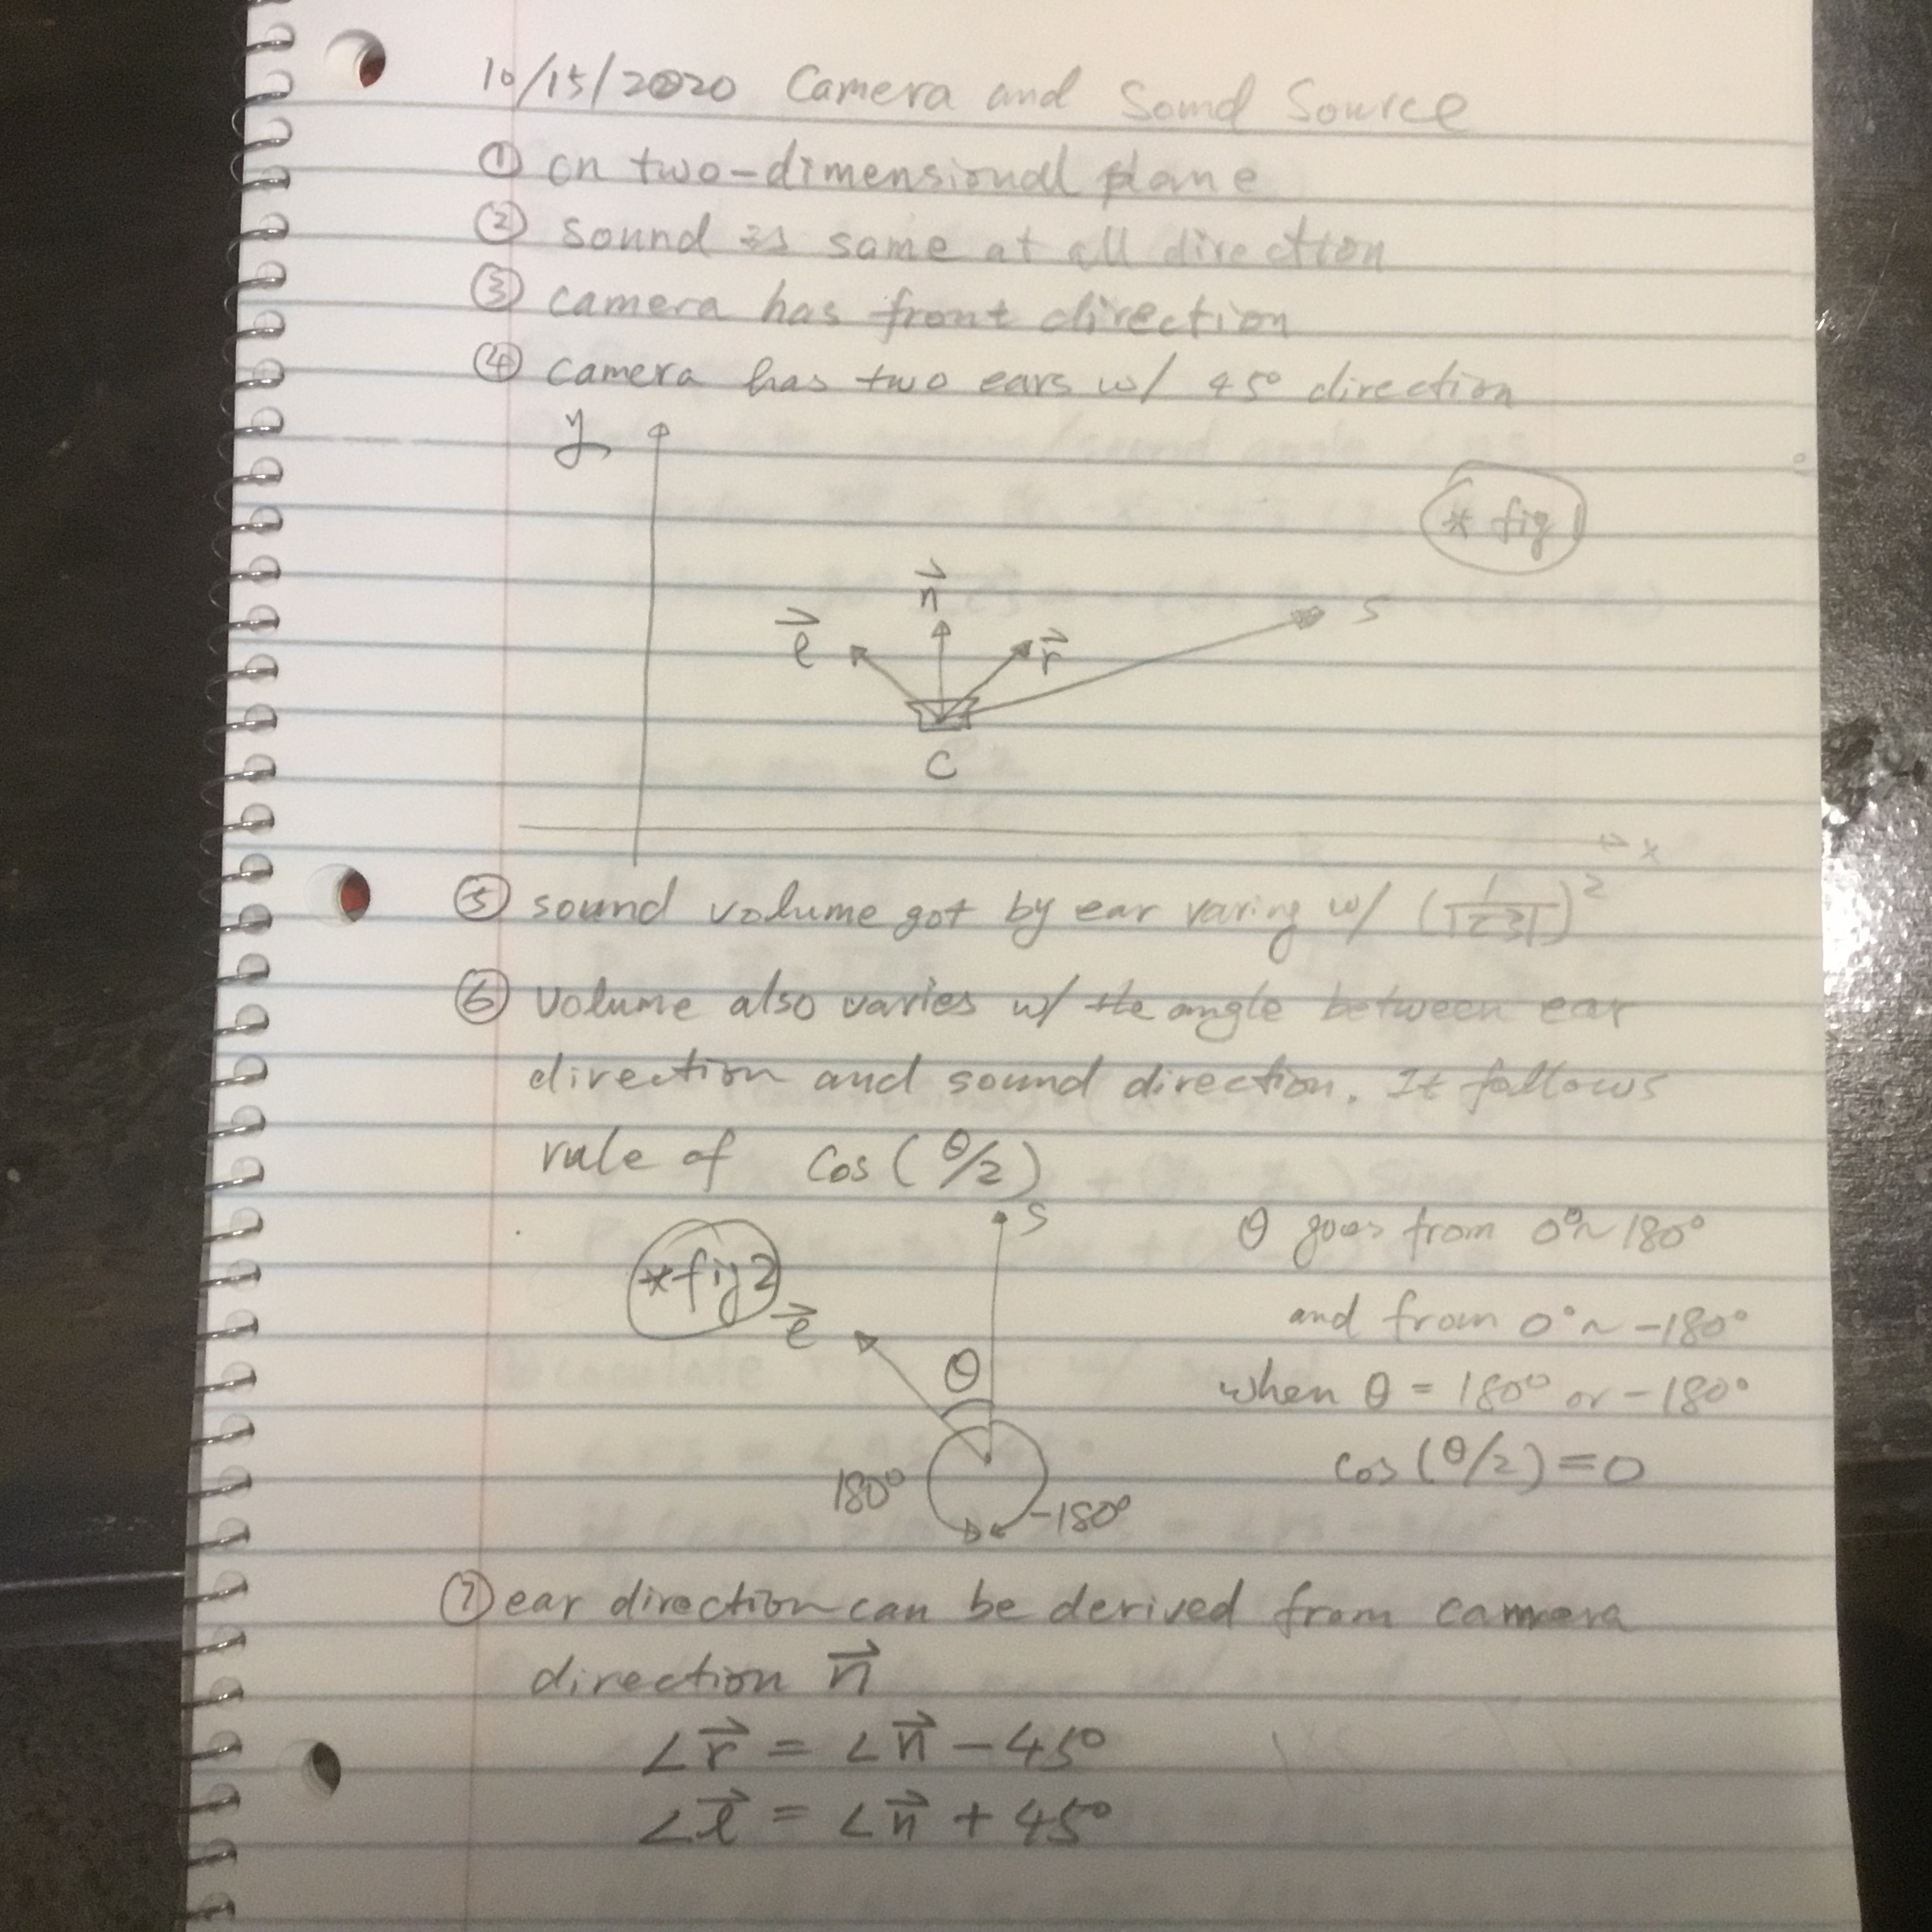 10/15/2020 Camera and Sound Source
① on two-dimensional plane
② sound is same at all direction
③ camera has front direction
④ camera has two ears w/ 45° direction
y
* fig 1
n⃗
ℓ⃗
r⃗
S
C
x
⑤ sound volume got by ear varing w/ (1/|CS⃗|)²
⑥ volume also varies w/ the angle between ear
direction and sound direction. It follows
rule of cos(θ/2)
S
θ goes from 0°~180°
*fig 2
and from 0°~-180°
ℓ⃗
θ
when θ = 180° or -180°
cos(θ/2)=0
180°
-180°
⑦ ear direction can be derived from camera
direction n⃗
∠r⃗ = ∠n⃗ - 45°
∠ℓ⃗ = ∠n⃗ + 45°